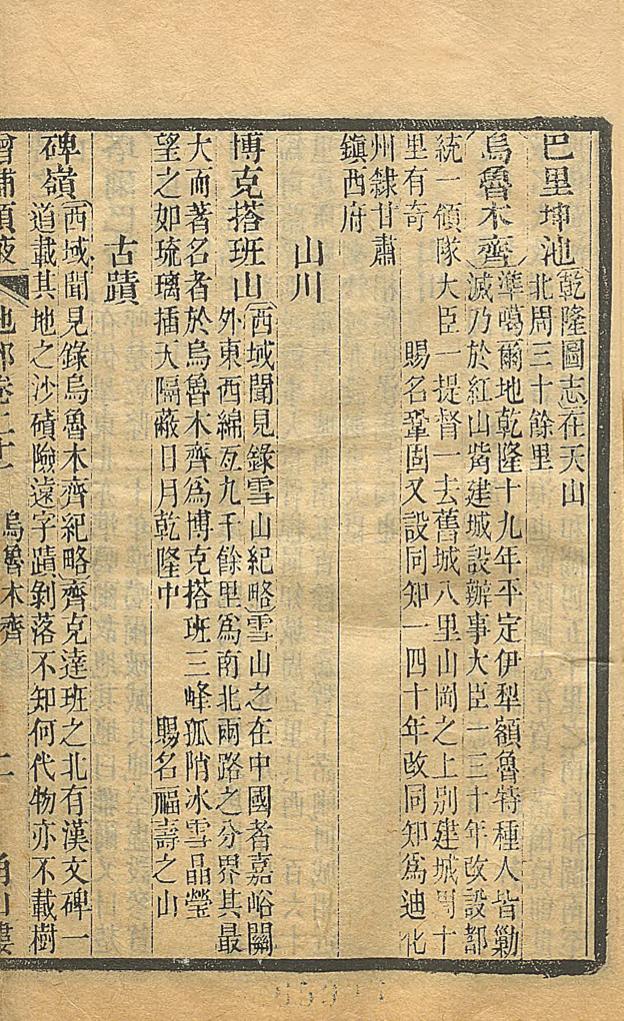 巴里坤池 乾隆圖志在天山
北周三十餘里
烏魯木齊 準噶爾地乾隆十九年平定伊犁額魯特種人皆勦
滅乃於紅山嘴建城設辦事大臣一三十年改設都
統一領隊大臣一提督一去舊城八里山岡之上別建城周十
里有奇 賜名鞏固又設同知一四十年改同知爲迪化
州隸甘肅
鎮西府
山川
博克搭班山 西域聞見錄雪山紀略雪山之在中國者嘉峪關
外東西綿亙九千餘里爲南北兩路之分界其最
大而著名者於烏魯木齊爲博克搭班三峰孤陗冰雪晶瑩
望之如琉璃插天隔蔽日月乾隆中 賜名福壽之山
古蹟
碑嶺 西域聞見錄烏魯木齊紀略齊克達班之北有漢文碑一
道載其地之沙磧險遠字蹟剝落不知何代物亦不載樹
增補類腋 地部卷二十 烏魯木齊 二